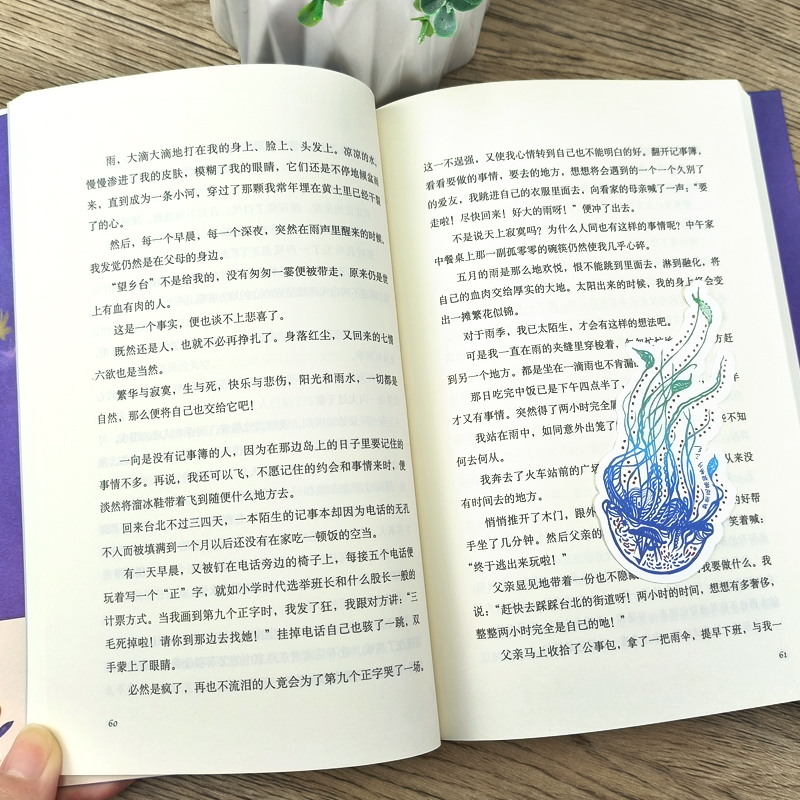 雨，大滴大滴地打在我的身上、脸上、头发上。凉凉的水，
慢慢渗进了我的皮肤，模糊了我的眼睛，它们还是不停地倾盆而
来，直到成为一条小河，穿过了那颗我常年埋在黄土里已经干裂
了的心。
然后，每一个早晨，每一个深夜，突然在雨声里醒来的时候，
我发觉仍然是在父母的身边。
“望乡台”不是给我的，没有匆匆一霎便被带走，原来仍是世
上有血有肉的人。
这是一个事实，便也谈不上悲喜了。
既然还是人，也就不必再挣扎了。身落红尘，又回来的七情
六欲也是当然。
繁华与寂寞，生与死，快乐与悲伤，阳光和雨水，一切都是
自然，那么便将自己也交给它吧！
一向是没有记事簿的人，因为在那边岛上的日子里要记住的
事情不多。再说，我还可以飞，不愿记住的约会和事情来时，便
淡然将溜冰鞋带着飞到随便什么地方去。
回来台北不过三四天，一本陌生的记事本却因为电话的无孔
不入而被填满到一个月以后还没有在家吃一顿饭的空当。
有一天早晨，又被钉在电话旁边的椅子上，每接五个电话便
玩着写一个“正”字，就如小学时代选举班长和什么股长一般的
计票方式。当我画到第九个正字时，我发了狂，我跟对方讲：“三
毛死掉啦！请你到那边去找她！”挂掉电话自己也骇了一跳，双
手蒙上了眼睛。
必然是疯了，再也不流泪的人竟会为了第九个正字哭了一场。
60
这一不逞强，又使我心情转到自己也不能明白的好。翻开记事簿，
看看要做的事情，要去的地方，想想将会遇到的一个一个久别了
的爱友，我跳进自己的衣服里面去，向看家的母亲喊了一声：“要
走啦！尽快回来！好大的雨呀！”便冲了出去。
不是说天上寂寞吗？为什么人间也有这样的事情呢？中午家
中餐桌上那一副孤零零的碗筷仍然使我几乎心碎。
五月的雨是那么地欢悦，恨不能跳到里面去，淋到融化，将
自己的血肉交给厚实的大地。太阳出来的时候，我的身上将会变
出一摊繁花似锦。
对于雨季，我已太陌生，才会有这样的想法吧。
可是我一直在雨的夹缝里穿梭着，匆匆忙忙 方赶
到另一个地方。都是坐在一滴雨也不肯漏
那日吃完中饭已是下午四点半了， 半
才又有事情。突然得了两小时完全属
我站在雨中，如同意外出笼了 些不知
何去何从。
我奔去了火车站前的广场 从来没
有时间去的地方。
悄悄推开了木门，跟外 的好帮
手坐了几分钟。然后父亲的 笑着喊：
“终于逃出来玩啦！”
父亲显见地带着一份也不隐藏 我要做什么。我
说：“赶快去踩踩台北的街道呀！两小时的时间，想想有多奢侈，
整整两小时完全是自己的吔！”
父亲马上收拾了公事包，拿了一把雨伞，提早下班，与我一
61